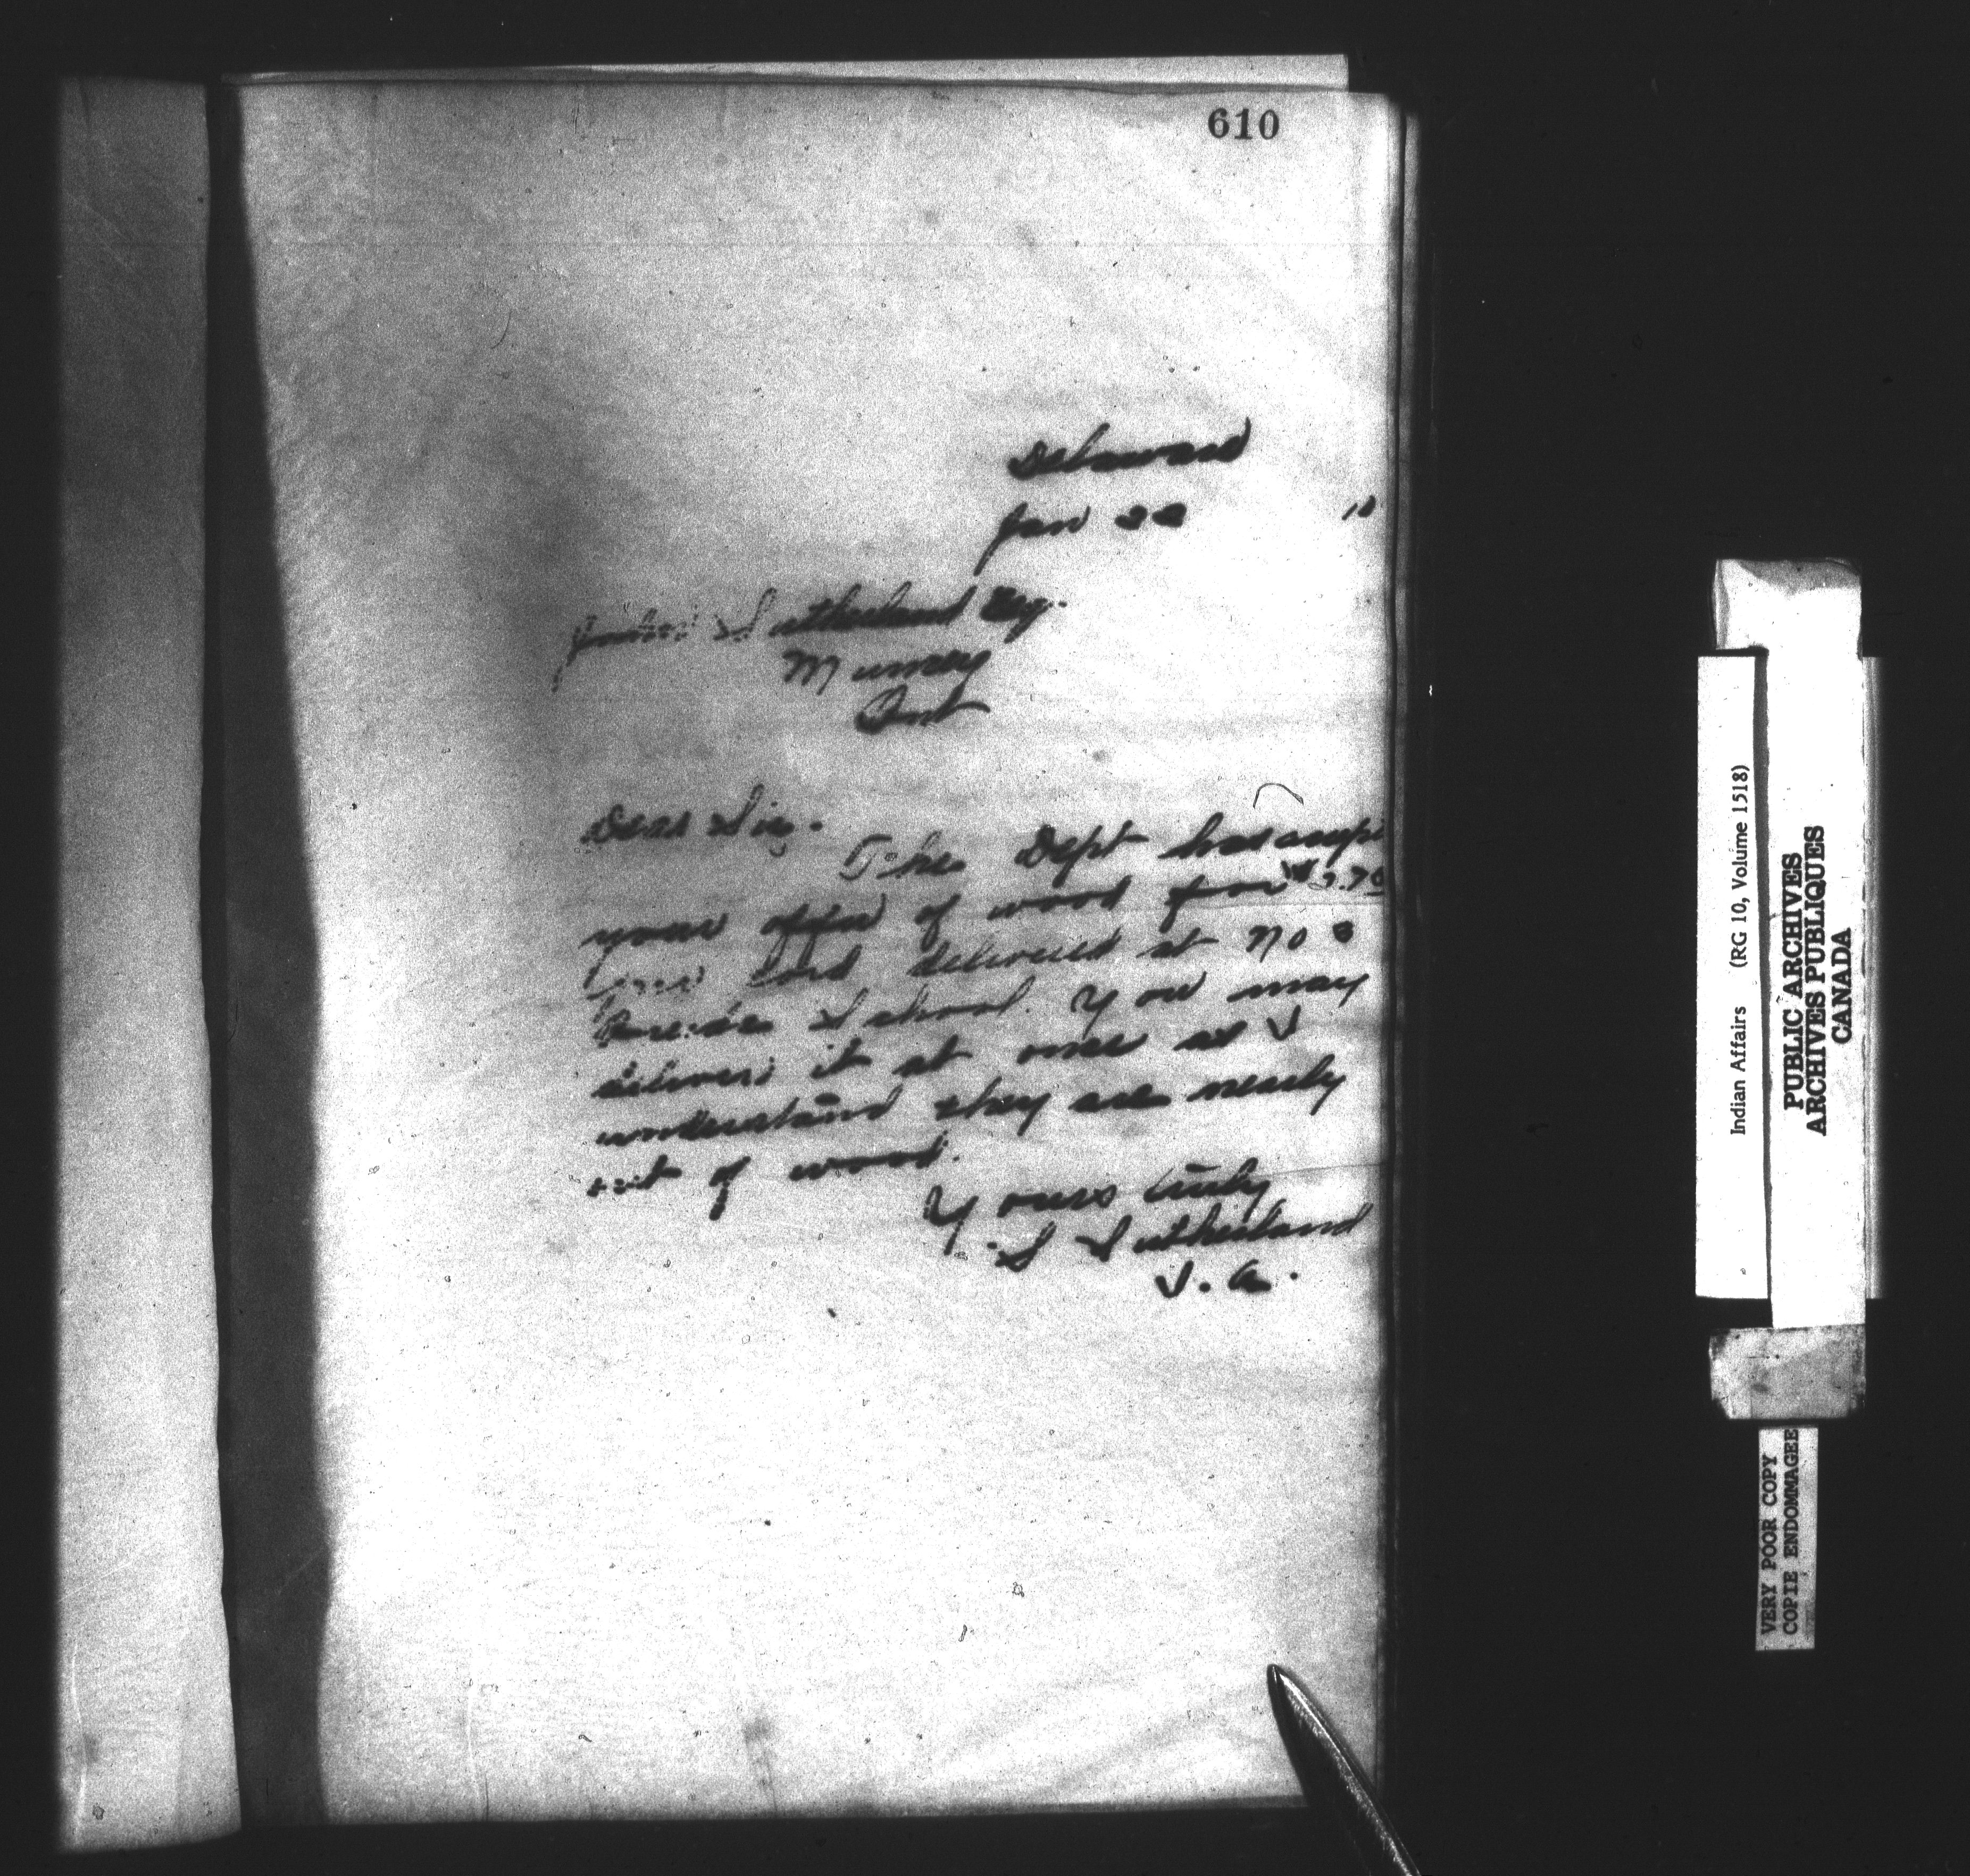 610
Delaware
Jan 22 10
James Sutherland Esq.
Muncey
Ont
Dear Sir.
The Dept has accept
your offer of wood for $2.75
per cord delivered at No 3
School. You may
deliver it at once as I
understand they are nearly
out of wood.
Yours truly
S Sutherland
I. A.
Indian Affairs (RG 10, Volume 1518)
PUBLIC ARCHIVES
ARCHIVES PUBLIQUES
CANADA
VERY POOR COPY
COPIE ENDOMMAGEE